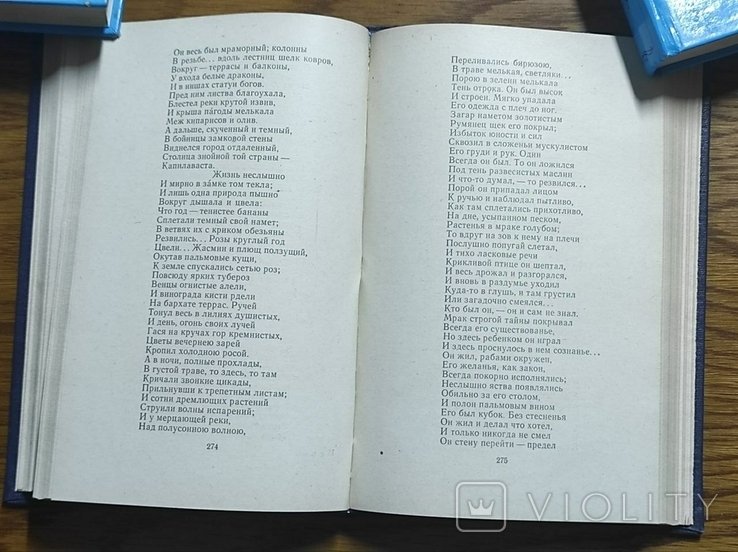 Он весь был мраморный; колонны
В резьбе... вдоль лестниц шелк ковров,
Вокруг — террасы и балконы,
У входа белые драконы,
И в нишах статуи богов.
Пред ним листва благоухала,
Блестел реки крутой извив,
И крыша па́годы мелькала
Меж кипарисов и олив.
А дальше, скученный и темный,
В бойницы замковой стены
Виднелся город отдаленный,
Столица знойной той страны —
Капилаваста.
Жизнь неслышно
И мирно в за́мке том текла;
И лишь одна природа пышно
Вокруг дышала и цвела:
Что год — тенистее бананы
Сплетали темный свой намет;
В ветвях их с криком обезьяны
Резвились... Розы круглый год
Цвели... Жасмин и плющ ползущий,
Окутав пальмовые кущи,
К земле спускались сетью роз;
Повсюду ярких тубероз
Венцы огнистые алели,
И винограда кисти рдели
На бархате террас. Ручей
Тонул весь в лилиях душистых,
И день, огонь своих лучей
Гася на кручах гор кремнистых,
Цветы вечернею зарей
Кропил холодною росой.
А в ночи, полные прохлады,
В густой траве, то здесь, то там
Кричали звонкие цикады,
Прильнувши к трепетным листам;
И сотни дремлющих растений
Струили волны испарений;
И у мерцающей реки,
Над полусонною волною,
274
Переливались бирюзою,
В траве мелькая, светляки...
Порою в зелени мелькала
Тень отрока. Он был высок
И строен. Мягко упадала
Его одежда с плеч до ног.
Загар наметом золотистым
Румянец щек его покрыл;
Избыток юности и сил
Сквозил в сложеньи мускулистом
Его груди и рук. Один
Всегда он был. То он ложился
Под тень развесистых маслин
И что-то думал, — то резвился...
Порой он припадал лицом
К ручью и наблюдал пытливо,
Как там сплетались прихотливо,
На дне, усыпанном песком,
Растенья в мраке голубом;
То вдруг на зов к нему на плечи
Послушно попугай слетал,
И тихо ласковые речи
Крикливой птице он шептал,
И весь дрожал и разгорался,
И вновь в раздумье уходил
Куда-то в глушь, и там грустил
Или загадочно смеялся...
Кто был он, — он и сам не знал.
Мрак строгой тайны покрывал
Всегда его существованье,
Но здесь ребенком он играл
И здесь проснулось в нем сознанье...
Он жил, рабами окружен,
Его желанья, как закон,
Всегда покорно исполнялись;
Неслышно яства появлялись
Обильно за его столом,
И полон пальмовым вином
Его был кубок. Без стесненья
Он жил и делал что хотел,
И только никогда не смел
Он стену перейти — предел
275
VIOLITY